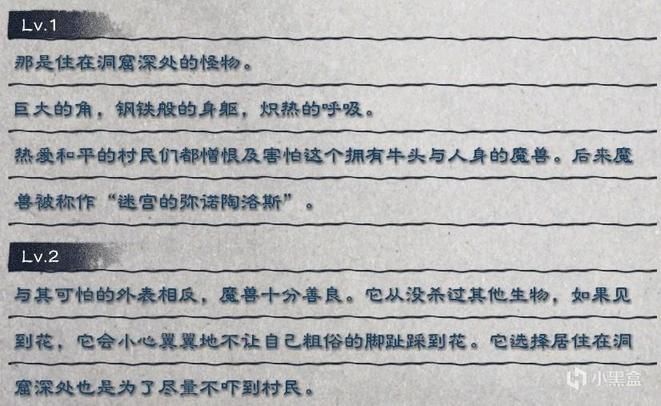 Lv.1
那是住在洞窟深处的怪物。
巨大的角，钢铁般的身躯，炽热的呼吸。
热爱和平的村民们都憎恨及害怕这个拥有牛头与人身的魔兽。后来魔
兽被称作“迷宫的弥诺陶洛斯”。
Lv.2
与其可怕的外表相反，魔兽十分善良。它从没杀过其他生物，如果见
到花，它会小心翼翼地不让自己粗俗的脚趾踩到花。它选择居住在洞
窟深处也是为了尽量不吓到村民。
小黑盒